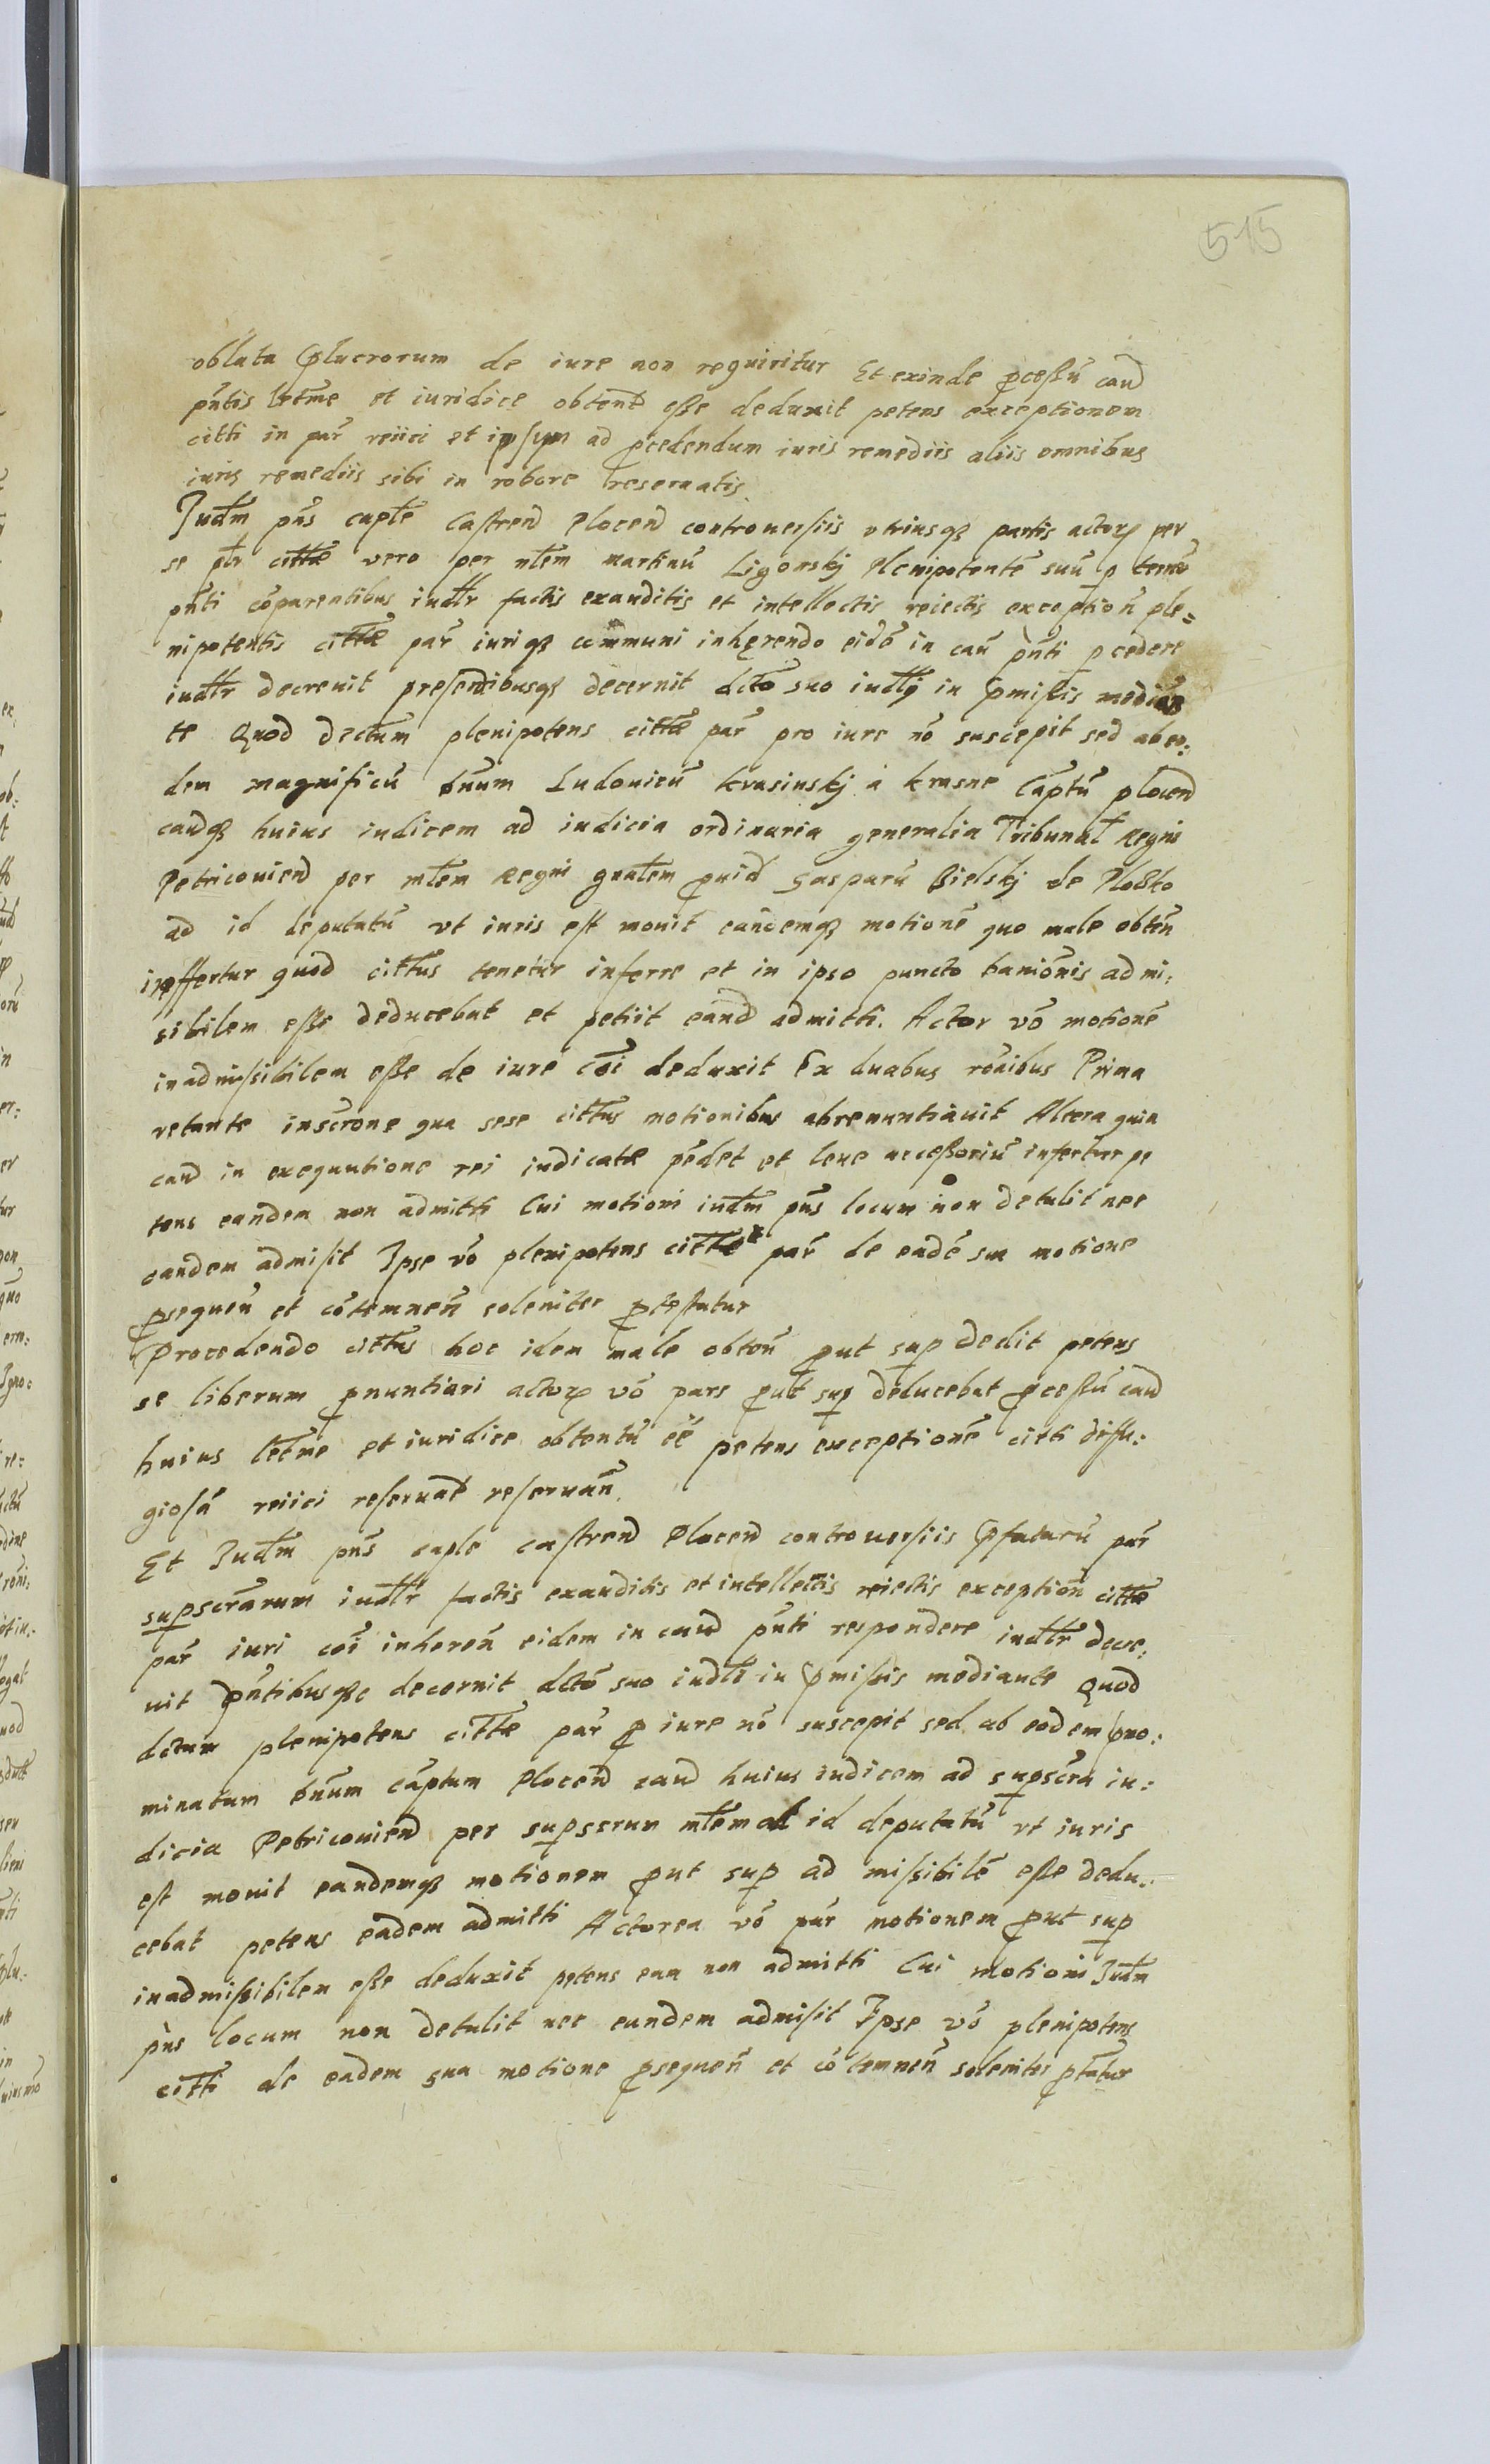 515
oblata plucrorum de iure non requiritur Et exinde pcessũ cauđ
pñtis lettme et iuridice obtenť esse deduxit petens exceptionem
citti in par̃ reiici et ipsum ad pcedendum iuris remediis aliis omnibus
iuris remediis sibi in robore reseruatis
Judm pñs captle Castrenđ Plocenđ controuersiis vtriusqȝ partis actorȩ per
se plr cittæ vero per nłem martinũ Ligonskj Plenipotentẽ suũ p
pñti cõparentibus iudłr factis exauditis et intellectis reiectis exceptioñ ple=
nipotentis cittæ par̃ iuriqȝ communi inhęrendo eidẽ in cau pñti pcedere
iudłr decreuit presentibusqȝ decernit dcto suo iudlj in pmissis median
te Quod dectum plenipotens cittæ par̃ pro iure nõ suscepit sed ab eo:
dem magnificũ dnum Ludouicũ Krasinskj á Krasne Captũ plocenđ
cauđqȝ huius iudicem ad iudicia ordinaria generalia Tribunał Regni
Petricouienđ per młem Regni gnałem puiđ Gasparũ Bielskj de Plosko
ad id deputatũ vt iuris est monit eandemqȝ motionẽ quo male obteñ
inffertur quod cittus tenetur inferre et in ipso puncto baniõnis admi:
sibilem esse deducebat et petiit eanđ admitti. Actor võ motionẽ
inadmissibilem esse de iure cõi deduxit Ex duabus rõnibus Prima
vetante inscrone qua sese cittus motionibus abrenuntiauit Altera quia
cauđ in exequutione rei iudicatæ pẽdet et leue accessoriũ infertur pe
tens eandem non admitti Cui motioni iudm pñs locum non detulit nec
eandem admisit Ipse võ plenipotens cittæ par̃ de eadẽ sua motione
psequeñ et cõtemneñ soleniter ptestatur
Procedendo cittus hoc idem male obteñ put sup dedit petens
se liberum pnuntiari actorȩ võ pars put sup deducebat pcessũ cauđ
huius lettme et iuridice obtentũ eẽ petens exceptionẽ citti diffu:
giosã reiici reseruať reseruañ
Et Judm pñs captle castrenđ Plocenđ controuersiis pfatarũ par̃
supscrarum iudłr factis exauditis et intellectis reiectis exceptioñ cittæ
par̃ iuri cõi inhereñ eidem in cauđ pñti respondere iudłr decre:
uit pñtibusqȝ decernit dctõ suo iudłi in pmissis mediante Quod
dctum plenipotens cittæ par̃ p iure nõ suscepit sed ab eodem pno:
minatum dnum Captum Plocenđ cauđ huius iudicem ad supscra iu:
dicia Petricouienđ per supscrum młem ad id deputatũ vt iuris
est monit eandemqȝ motionem put sup ad missibilẽ esse dedu:
cebat petens eadem admitti Actorea võ par̃ motionem put sup
inadmissibilem esse deduxit petens eam non admitti Cui motioni Judm
pñs locum non detulit nec eandem admisit Ipse võ plenipotens
citti de eadem sua motione psequeñ et cõtemneñ soleniter ptatur